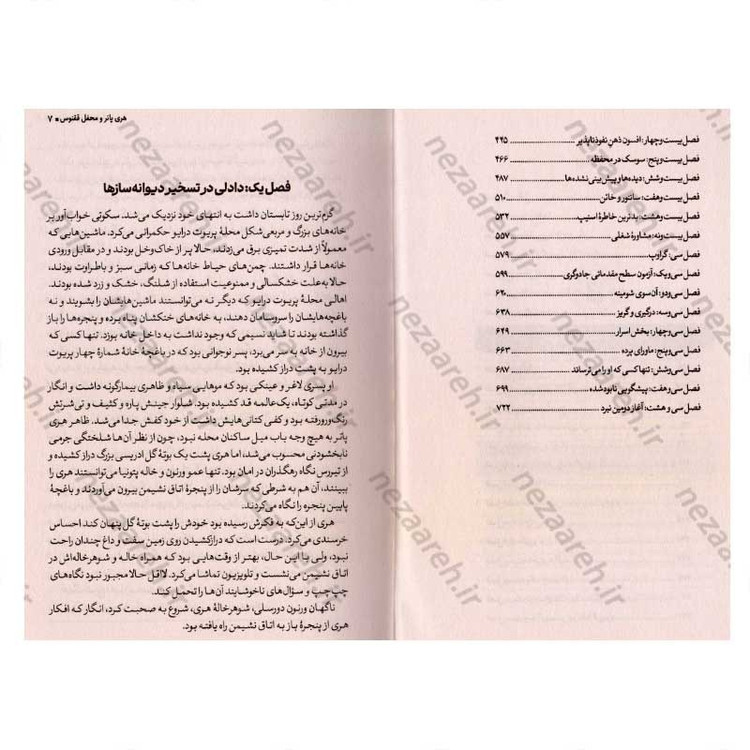 فصل بیست‌وچهار: افسون ذهنِ نفوذناپذیر ........ ۴۴۵
فصل بیست‌وپنج: سوسک در محفظه ........ ۴۶۶
فصل بیست‌وشش: دیده‌ها و پیش‌بینی نشده‌ها ........ ۴۸۷
فصل بیست‌وهفت: سانتور و خائن ........ ۵۱۰
فصل بیست‌وهشت: بدترین خاطرهٔ اسنیپ ........ ۵۳۲
فصل بیست‌ونه: مشاورهٔ شغلی ........ ۵۵۷
فصل سی: گراوپ ........ ۵۷۹
فصل سی‌ویک: آزمون سطح مقدماتی جادوگری ........ ۵۹۹
فصل سی‌ودو: آن سوی شومینه ........ ۶۲۰
فصل سی‌وسه: درگیری و گریز ........ ۶۳۸
فصل سی‌وچهار: بخش اسرار ........ ۶۴۹
فصل سی‌وپنج: ماورای پرده ........ ۶۶۳
فصل سی‌وشش: تنها کسی که او را می‌ترساند ........ ۶۸۷
فصل سی‌وهفت: پیشگویی نابودشده ........ ۶۹۹
فصل سی‌و هشت: آغاز دومین نبرد ........ ۷۲۲
هری پاتر و محفل ققنوس ■ ۷
فصل یک: دادلی در تسخیر دیوانه‌سازها
گرم‌ترین روز تابستان داشت به انتهای خود نزدیک می‌شد. سکوتی خواب‌آور بر
خانه‌های بزرگ و مربعی‌شکل محلهٔ پریوت درایو حکمرانی می‌کرد. ماشین‌هایی که
معمولاً از شدت تمیزی برق می‌زدند، حالا پر از خاک‌وخل بودند و در مقابل ورودی
خانه‌ها قرار داشتند. چمن‌های حیاط خانه‌ها که زمانی سبز و باطراوت بودند،
حالا به‌علت خشکسالی و ممنوعیت استفاده از شلنگ، خشک و زرد شده بودند.
اهالی محلهٔ پریوت درایو که دیگر نه می‌توانستند ماشین‌هایشان را بشویند و نه
باغچه‌هایشان را سروسامان دهند، به خانه‌های خنکشان پناه برده و پنجره‌ها را باز
گذاشته بودند تا شاید نسیمی که وجود نداشت به داخل خانه بوزد. تنها کسی که
بیرون از خانه به سر می‌برد، پسر نوجوانی بود که در باغچهٔ خانهٔ شمارهٔ چهار پریوت
درایو به پشت دراز کشیده بود.
او پسری لاغر و عینکی بود که موهایی سیاه و ظاهری بیمارگونه داشت و انگار
در مدتی کوتاه، یک‌عالمه قد کشیده بود. شلوار جینش پاره و کثیف و تی‌شرتش
رنگ‌ورورفته بود و کفی کتانی‌هایش داشت از خود کفش جدا می‌شد. ظاهر هری
پاتر به هیچ وجه باب میل ساکنان محله نبود، چون از نظر آن‌ها شلختگی جرمی
نابخشودنی محسوب می‌شد، اما هری پشت یک بوتهٔ گل ادریسی بزرگ دراز کشیده و
از تیررس نگاه رهگذران در امان بود. تنها عمو ورنون و خاله پتونیا می‌توانستند هری را
ببینند، آن هم به شرطی که سرشان را از پنجرهٔ اتاق نشیمن بیرون می‌آوردند و باغچهٔ
پایین پنجره را نگاه می‌کردند.
هری از این‌که به فکرش رسیده بود خودش را پشت بوتهٔ گل پنهان کند احساس
خرسندی می‌کرد. درست است که درازکشیدن روی زمین سفت و داغ چندان راحت
نبود، ولی با این حال، بهتر از وقت‌هایی بود که همراه خاله و شوهرخاله‌اش در
اتاق نشیمن می‌نشست و تلویزیون تماشا می‌کرد. لااقل حالا مجبور نبود نگاه‌های
چپ‌چپ و سؤال‌های ناخوشایند آن‌ها را تحمل کند.
ناگهان ورنون دورسلی، شوهرخالهٔ هری، شروع به صحبت کرد، انگار که افکار
هری از پنجرهٔ باز به اتاق نشیمن راه یافته بود.
nezaareh.ir
nezaareh.ir
nezaareh.ir
nezaareh.ir
nezaareh.ir
nezaareh.ir